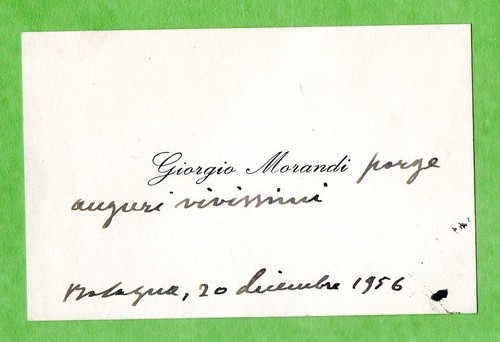 Giorgio Morandi porge
auguri vivissimi
Bologna, 20 dicembre 1956